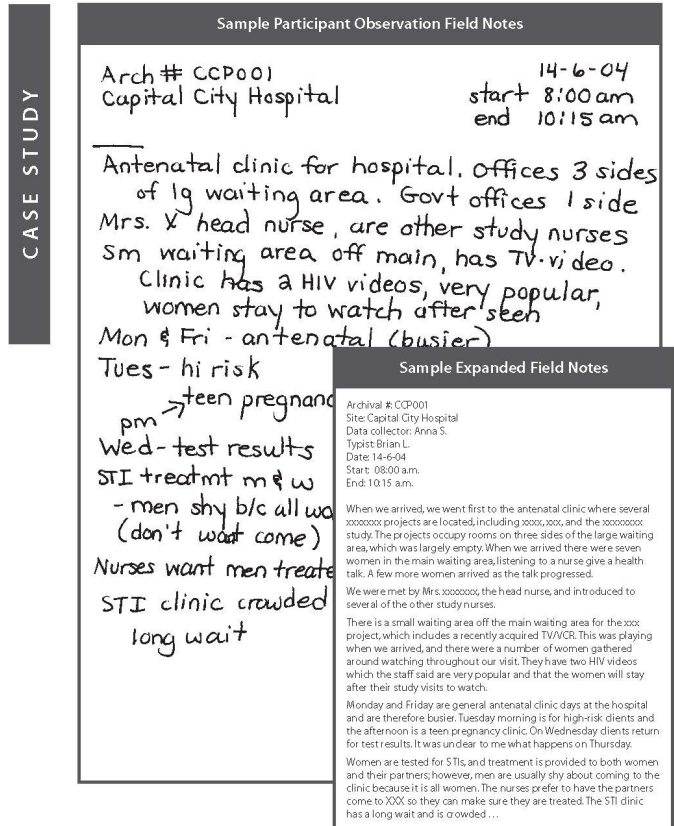 CASE STUDY
Sample Participant Observation Field Notes
Arch # CCP001
14-6-04
Capital City Hospital
start 8:00 am
end 10:15 am
Antenatal clinic for hospital. Offices 3 sides
of lg waiting area. Govt offices 1 side
Mrs. X head nurse, are other study nurses
Sm waiting area off main, has TV-video.
Clinic has 2 HIV videos, very popular,
women stay to watch after seen
Mon & Fri - antenatal (busier)
Tues - hi risk
pm → teen pregnanc
Wed - test results
STI treatmt m & w
- men shy b/c all wo
(don't want come)
Nurses want men treate
STI clinic crowded
long wait
Sample Expanded Field Notes
Archival #: CCP001
Site: Capital City Hospital
Data collector: Anna S.
Typist: Brian L.
Date: 14-6-04
Start: 08:00 a.m.
End: 10:15 a.m.
When we arrived, we went first to the antenatal clinic where several
xxxxxxx projects are located, including xxxx, xxx, and the xxxxxxxx
study. The projects occupy rooms on three sides of the large waiting
area, which was largely empty. When we arrived there were seven
women in the main waiting area, listening to a nurse give a health
talk. A few more women arrived as the talk progressed.
We were met by Mrs. xxxxxxx, the head nurse, and introduced to
several of the other study nurses.
There is a small waiting area off the main waiting area for the xxx
project, which includes a recently acquired TV/VCR. This was playing
when we arrived, and there were a number of women gathered
around watching throughout our visit. They have two HIV videos
which the staff said are very popular and that the women will stay
after their study visits to watch.
Monday and Friday are general antenatal clinic days at the hospital
and are therefore busier. Tuesday morning is for high-risk clients and
the afternoon is a teen pregnancy clinic. On Wednesday clients return
for test results. It was unclear to me what happens on Thursday.
Women are tested for STIs, and treatment is provided to both women
and their partners; however, men are usually shy about coming to the
clinic because it is all women. The nurses prefer to have the partners
come to XXX so they can make sure they are treated. The STI clinic
has a long wait and is crowded . . .